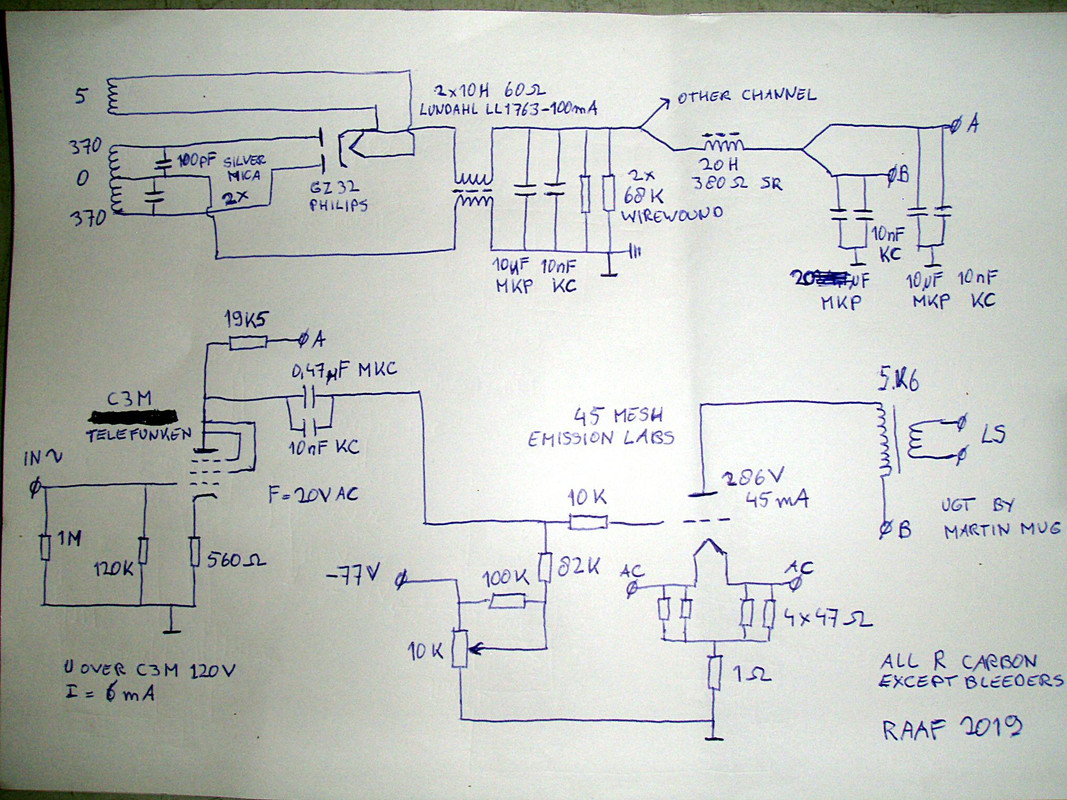 5
370
0
370
100pF SILVER
MICA
2x
GZ32
PHILIPS
2x10H 60Ω
LUNDAHL LL1763-100mA
OTHER CHANNEL
10µF
MKP
10nF
KC
2x
68K
WIREWOUND
20H
380Ω SR
A
B
10nF
KC
µF
MKP
10µF
MKP
10nF
KC
19K5
A
0,47µF MKC
10nF KC
C3M
TELEFUNKEN
IN~
F=20V AC
1M
120K
560Ω
U OVER C3M 120V
I = 6mA
45 MESH
EMISSION LABS
5K6
LS
286V
45mA
10K
82K
100K
-77V
10K
AC
AC
4x47Ω
1Ω
B
UGT BY
MARTIN MUG
ALL R CARBON
EXCEPT BLEEDERS
RAAF 2019